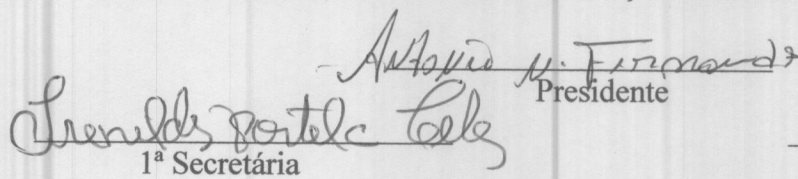 Antonio N. Fernandes
Presidente
Irenilds Portela Teles
1ª Secretária